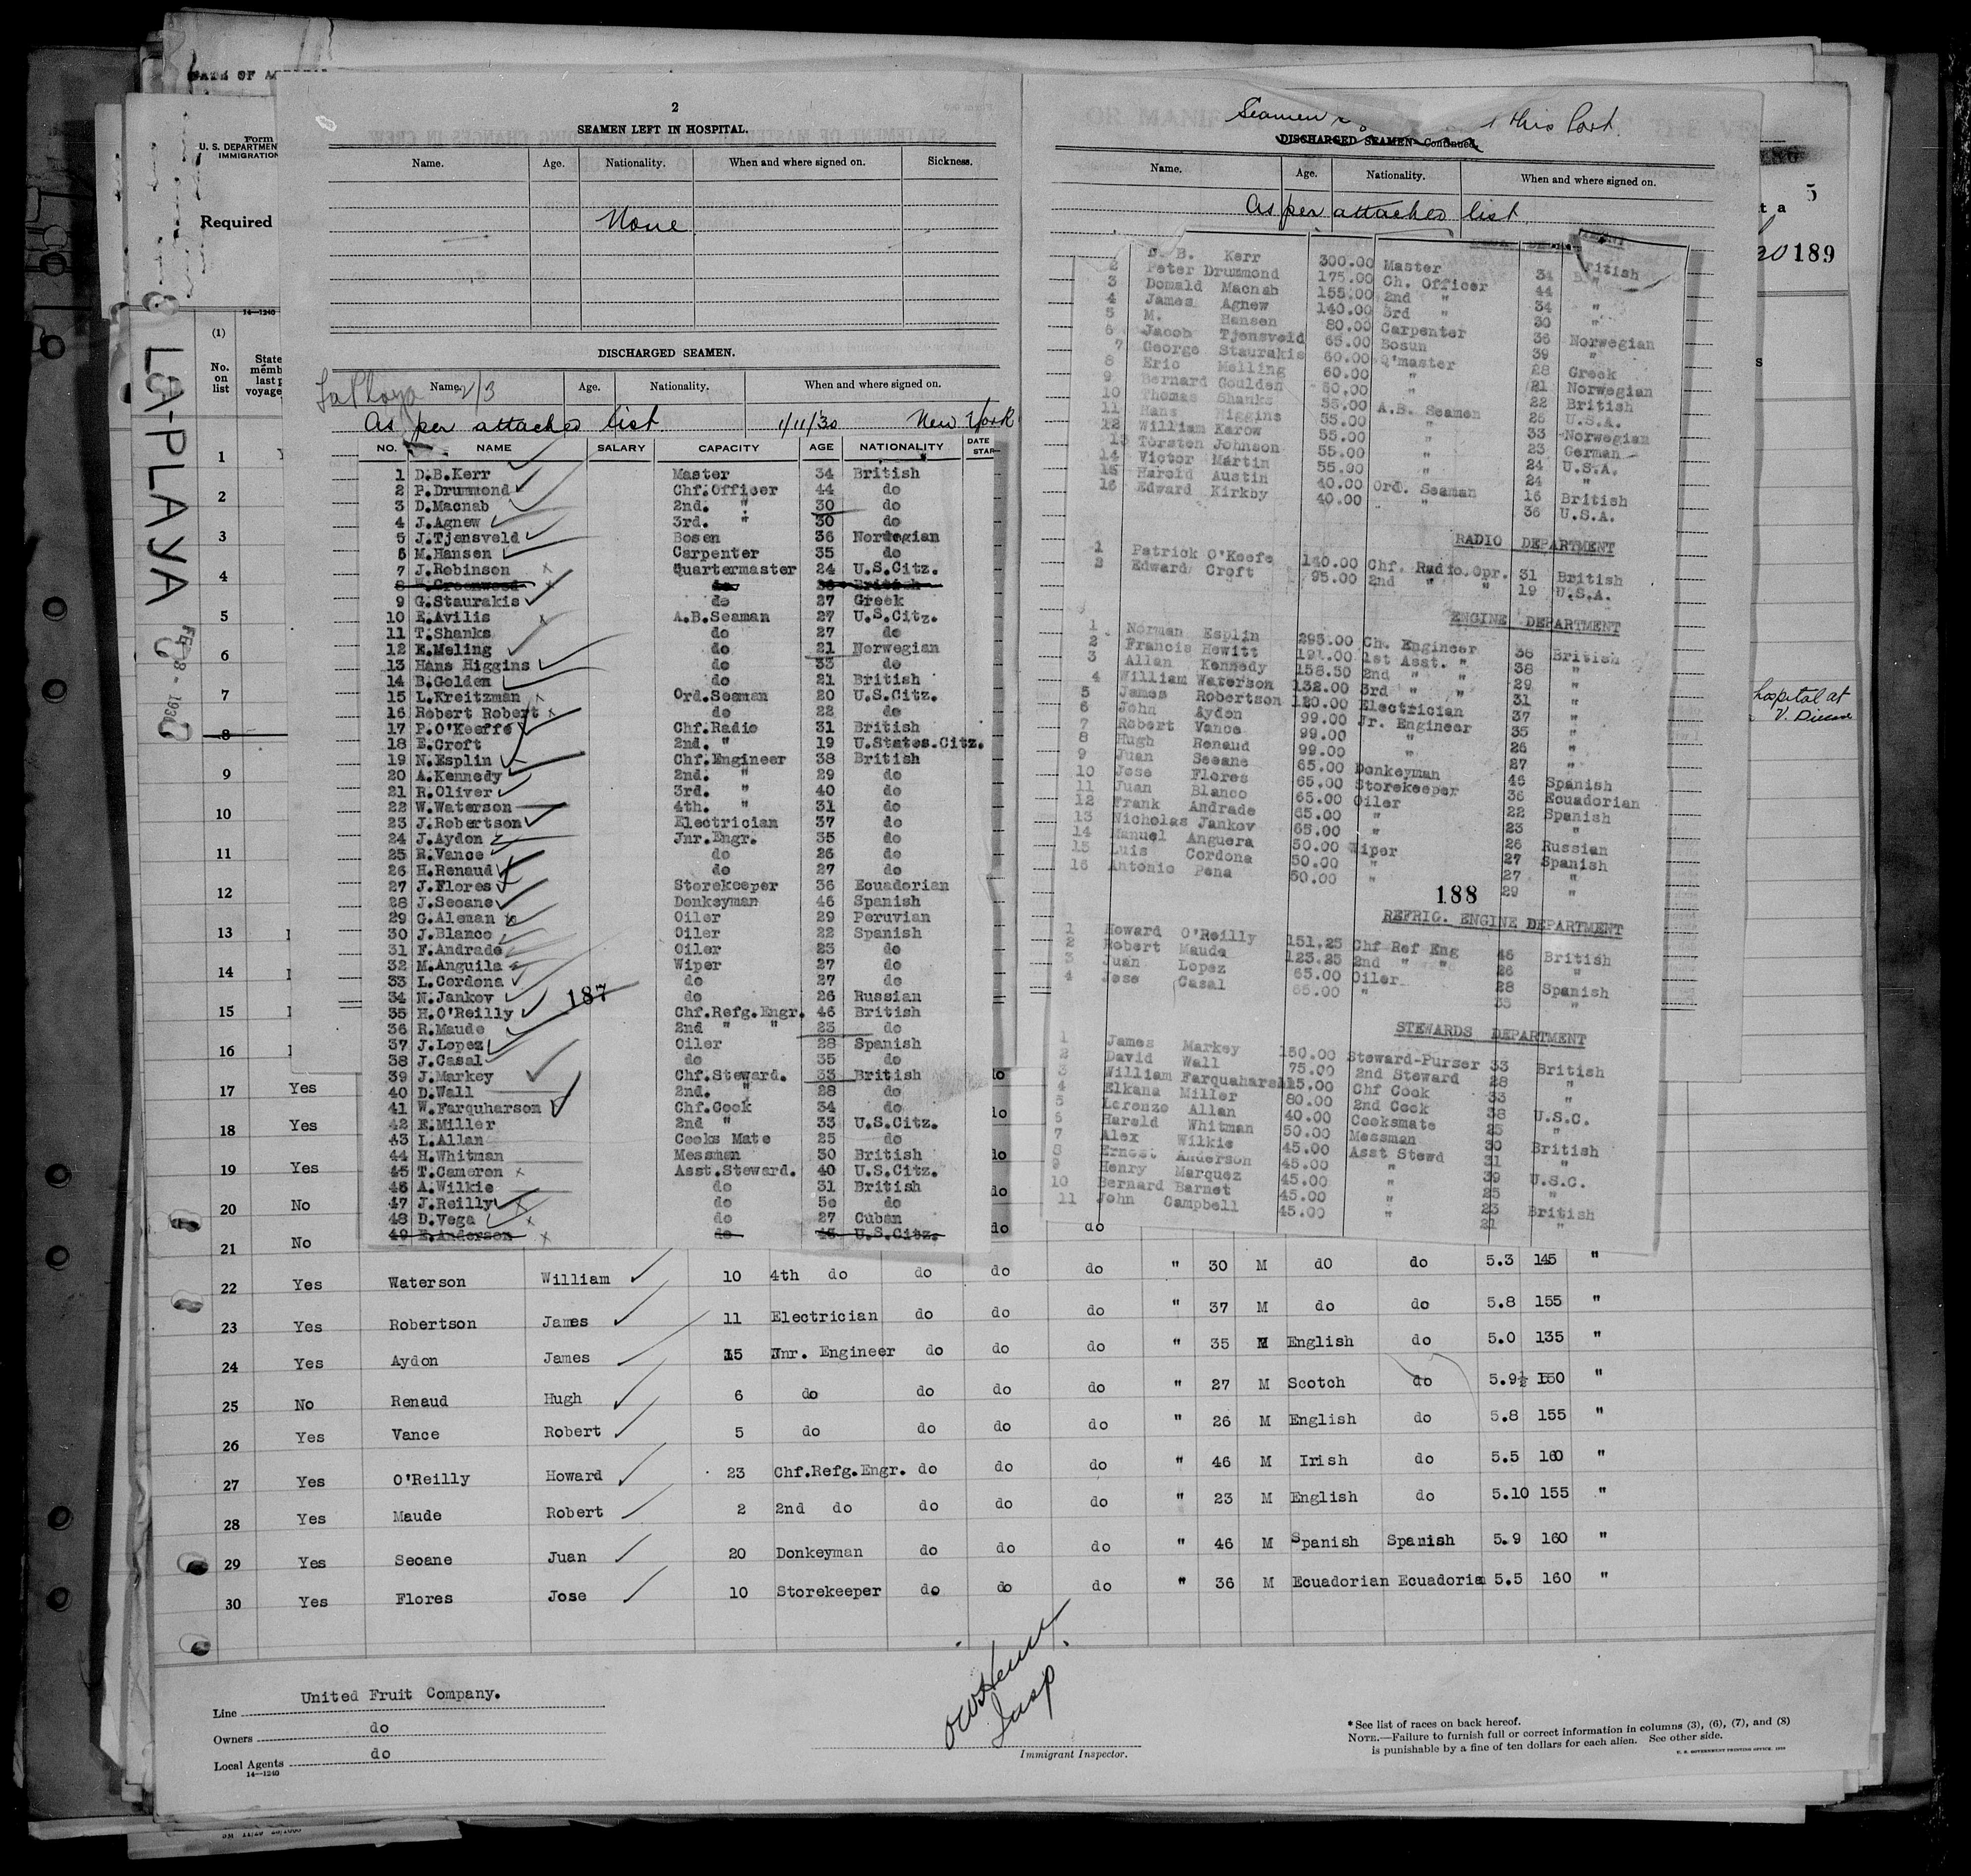 DATE OF
Form
U. S. DEPARTMENT
IMMIGRATION
Required
14—1240
(1)
No. on list
LA-PLAYA
FEB 8 - 193
2
SEAMEN LEFT IN HOSPITAL.
Name. Age. Nationality. When and where signed on. Sickness.
None
DISCHARGED SEAMEN.
La Playa 2/3
Name. Age. Nationality. When and where signed on.
As per attached list 1/11/30 New York
NO. NAME SALARY CAPACITY AGE NATIONALITY DATE STAR
1 D.B.Kerr Master 34 British
2 P.Drummond Chf.Officer 44 do
3 D.Macnab 2nd. " 30 do
4 J.Agnew 3rd. " 30 do
5 J.Tjensveld Bosen 36 Norwegian
6 M.Hansen Carpenter 35 do
7 J.Robinson Quartermaster 24 U.S.Citz.
8 W.Greenwood do British
9 G.Staurakis do 27 Greek
10 E.Avilis A.B.Seaman 27 U.S.Citz.
11 T.Shanks do 27 do
12 E.Meling do 21 Norwegian
13 Hans Higgins do 33 do
14 B.Golden do 21 British
15 L.Kreitzman Ord.Seaman 20 U.S.Citz.
16 Robert Robert do 22 do
17 P.O'Keeffe Chf.Radio 31 British
18 E.Croft 2nd. " 19 U.States.Citz.
19 N.Esplin Chf.Engineer 38 British
20 A.Kennedy 2nd. " 29 do
21 R.Oliver 3rd. " 40 do
22 W.Waterson 4th. " 31 do
23 J.Robertson Electrician 37 do
24 J.Aydon Jnr.Engr. 35 do
25 R.Vance do 26 do
26 H.Renaud do 27 do
27 J.Flores Storekeeper 36 Ecuadorian
28 J.Seoane Donkeyman 46 Spanish
29 G.Aleman Oiler 29 Peruvian
30 J.Blanco Oiler 22 Spanish
31 F.Andrade Oiler 23 do
32 M.Anguila Wiper 27 do
33 L.Cordona do 27 do
34 N.Jankov do 26 Russian
187
35 H.O'Reilly Chf.Refg.Engr. 46 British
36 R.Maude 2nd " " 23 do
37 J.Lopez Oiler 28 Spanish
38 J.Casal do 35 do
39 J.Markey Chf.Steward. 33 British
40 D.Wall 2nd. " 28 do
41 W.Farquharson Chf.Cook 34 do
42 E.Miller 2nd " 33 U.S.Citz.
43 L.Allan Cooks Mate 25 do
44 H.Whitman Messman 30 British
45 T.Cameron Asst.Steward. 40 U.S.Citz.
46 A.Wilkie do 31 British
47 J.Reilly do 50 do
48 D.Vega do 27 Cuban
49 E.Anderson do U.S.Citz.
Seamen this Port.
DISCHARGED SEAMEN—Continued.
Name. Age. Nationality. When and where signed on.
As per attached list
D. B. Kerr 300.00 Master 34 British
2 Peter Drummond 175.00 Ch. Officer 44 "
3 Donald Macnab 155.00 2nd " 34 "
4 James Agnew 140.00 3rd " 30 "
5 M. Hansen 80.00 Carpenter 36 Norwegian
6 Jacob Tjensveld 65.00 Bosun 39 "
7 George Staurakis 60.00 Q'master 28 Greek
8 Eric Melling 60.00 " 21 Norwegian
9 Bernard Goulden 60.00 " 22 British
10 Thomas Shanks 55.00 A.B. Seamen 26 U.S.A.
11 Hans Higgins 55.00 " 33 Norwegian
12 William Karow 55.00 " 23 German
13 Torsten Johnson 55.00 " 24 U.S.A.
14 Victor Martin 55.00 " 24 "
15 Harold Austin 40.00 Ord. Seaman 16 British
16 Edward Kirkby 40.00 " 36 U.S.A.
RADIO DEPARTMENT
1 Patrick O'Keefe 140.00 Chf. Radio.Opr. 31 British
2 Edward Croft 95.00 2nd " " 19 U.S.A.
ENGINE DEPARTMENT
1 Norman Esplin 295.00 Ch. Engineer 38 British
2 Francis Hewitt 191.00 1st Asst. " 38 "
3 Allan Kennedy 158.50 2nd " " 29 "
4 William Waterson 132.00 3rd " " 31 "
5 James Robertson 120.00 Electrician 37 "
6 John Aydon 99.00 Jr. Engineer 35 "
7 Robert Vance 99.00 " 26 "
8 Hugh Renaud 99.00 " 27 "
9 Juan Seoane 65.00 Donkeyman 46 Spanish
10 Jose Flores 65.00 Storekeeper 36 Ecuadorian
11 Juan Blanco 65.00 Oiler 22 Spanish
12 Frank Andrade 65.00 " 23 "
13 Nicholas Jankov 65.00 " 26 Russian
14 Manuel Anguera 50.00 Wiper 27 Spanish
15 Luis Cordona 50.00 " 27 "
16 Antonio Pena 50.00 " 29 "
188
REFRIG. ENGINE DEPARTMENT
1 Howard O'Reilly 151.25 Chf Ref Eng 46 British
2 Robert Maude 123.25 2nd " " 26 "
3 Juan Lopez 65.00 Oiler 28 Spanish
4 Jose Casal 65.00 " 35 "
STEWARDS DEPARTMENT
1 James Markey 150.00 Steward-Purser 33 British
2 David Wall 75.00 2nd Steward 28 "
3 William Farquaharson Chf Cook 33 "
4 Elkana Miller 80.00 2nd Cook 38 U.S.C.
5 Lorenzo Allan 40.00 Cooksmate 25 "
6 Harold Whitman 50.00 Messman 30 British
7 Alex Wilkie 45.00 Asst Stewd 31 "
8 Ernest Anderson 45.00 " 39 U.S.C.
9 Henry Marquez 45.00 " 25 "
10 Bernard Barnet 45.00 " 23 British
11 John Campbell 45.00 " 21 "
5
189
hospital at
1
2
3
4
5
6
7
8
9
10
11
12
13
14
15
16
17 Yes
18 Yes
19 Yes
20 No
21 No do
22 Yes Waterson William 10 4th do do do do " 30 M do do 5.3 145 "
23 Yes Robertson James 11 Electrician do do do " 37 M do do 5.8 155 "
24 Yes Aydon James 15 Jnr. Engineer do do do " 35 M English do 5.0 135 "
25 No Renaud Hugh 6 do do do do " 27 M Scotch do 5.9½ 150 "
26 Yes Vance Robert 5 do do do do " 26 M English do 5.8 155 "
27 Yes O'Reilly Howard 23 Chf.Refg.Engr. do do do " 46 M Irish do 5.5 160 "
28 Yes Maude Robert 2 2nd do do do do " 23 M English do 5.10 155 "
29 Yes Seoane Juan 20 Donkeyman do do do " 46 M Spanish Spanish 5.9 160 "
30 Yes Flores Jose 10 Storekeeper do do do " 36 M Ecuadorian Ecuadoria 5.5 160 "
Line United Fruit Company.
Owners do
Local Agents do
14—1240
Insp
Immigrant Inspector.
* See list of races on back hereof.
NOTE.—Failure to furnish full or correct information in columns (3), (6), (7), and (8)
is punishable by a fine of ten dollars for each alien. See other side.
U. S. GOVERNMENT PRINTING OFFICE